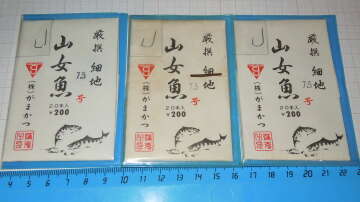 厳撰 細地
山女魚
7.5 号
(株)がまかつ
20本入
¥200
厳撰 細地
山女魚
7.5 号
(株)がまかつ
20本入
¥200
厳撰 細地
山女魚
7.5 号
(株)がまかつ
20本入
¥200
4 5 6 7 8 9 10 11 12 13 14 15 16 17 18 19 20 21 22